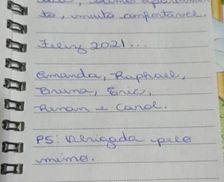 to, muito confortável.
Feliz 2021...
Amanda, Raphael,
Bruna, Eric,
Renan e Carol.
PS: Obrigada pelo
mimo.